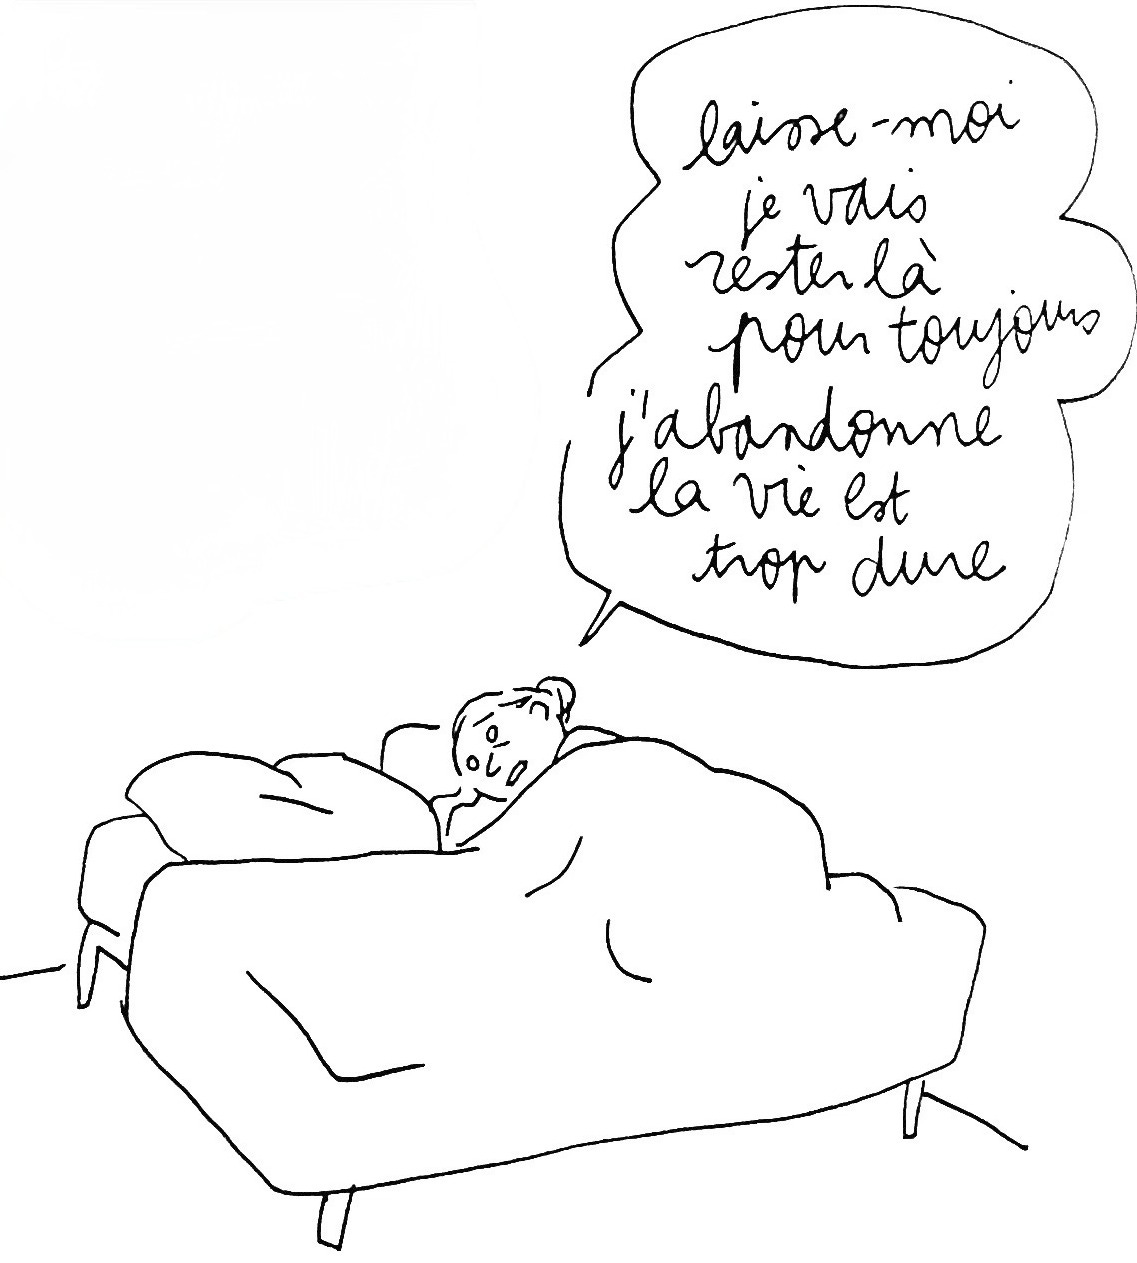 laisse-moi
je vais
rester là
pour toujours
j'abandonne
la vie est
trop dure